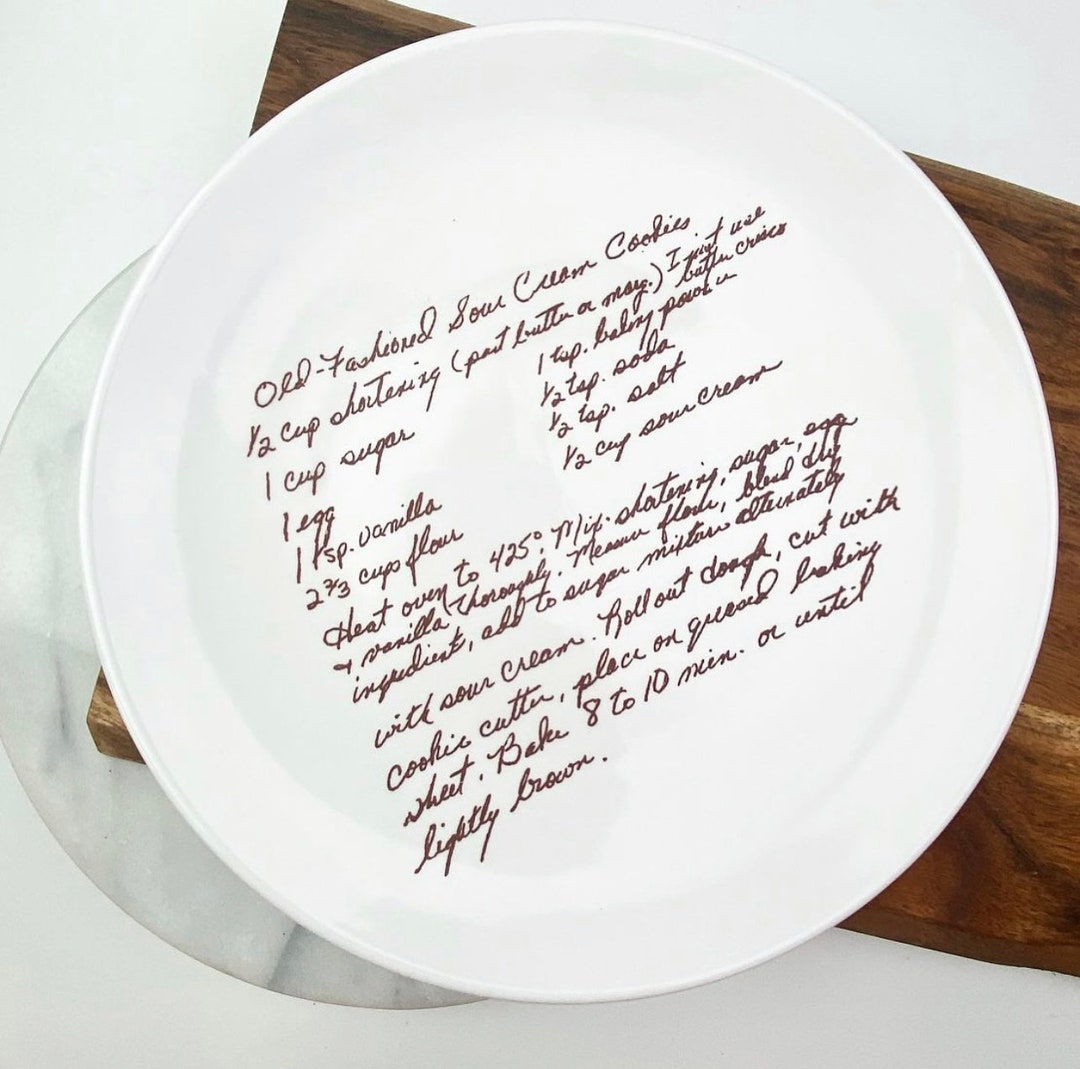 Old-Fashioned Sour Cream Cookies
½ cup shortening (part butter or marg.) I just use butter crisco
1 cup sugar
1 egg
1 tsp. vanilla
2 ⅔ cups flour
1 tsp. baking powder
½ tsp. soda
½ tsp. salt
½ cup sour cream
Heat oven to 425°. Mix shortening, sugar, egg
+ vanilla thoroughly. Measure flour, blend dry
ingredients, add to sugar mixture alternately
with sour cream. Roll out dough, cut with
cookie cutter, place on greased baking
sheet. Bake 8 to 10 min. or until
lightly brown.